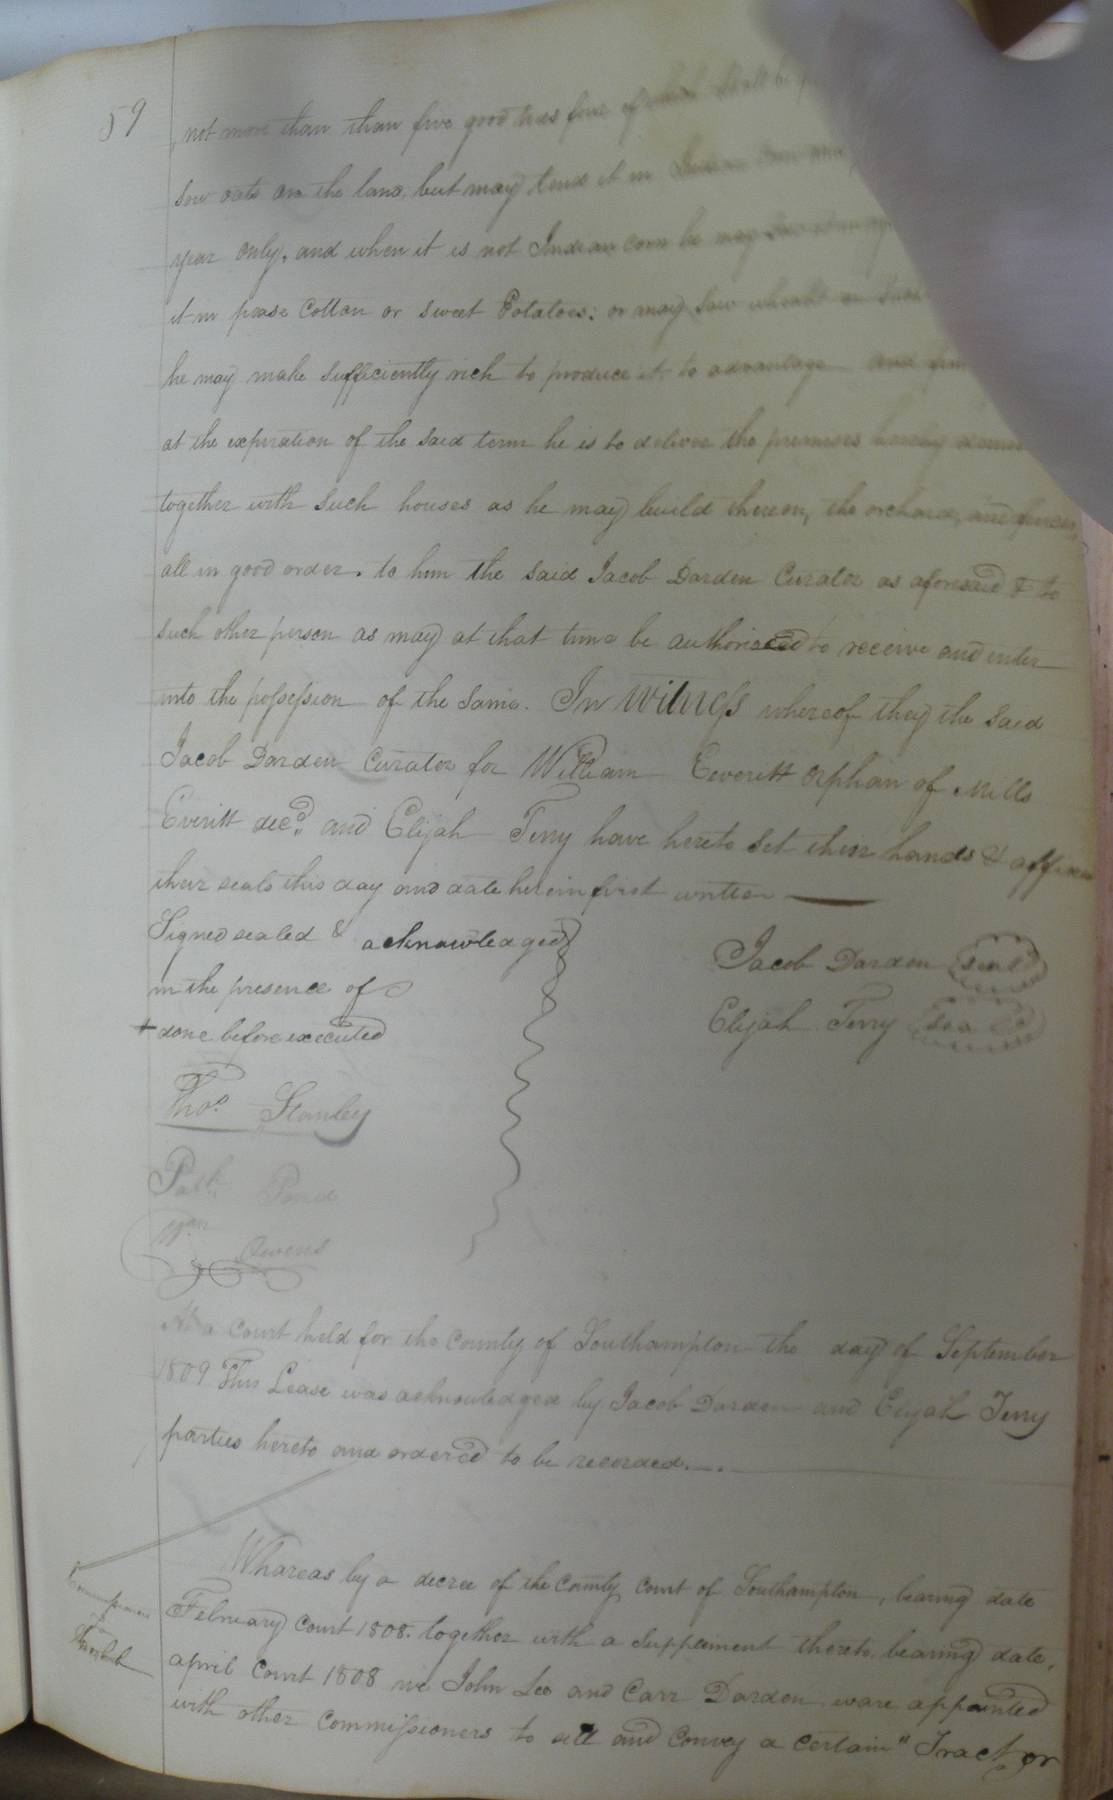 59
not more than than five good trees four of which shall be
sow oats on the land, but may tend it in Indian Corn
year only, and when it is not Indian corn he may
it in pease Cotton or sweet Potatoes; or may sow wheat on
he may make sufficiently rich to produce it to advantage and
at the expiration of the said term he is to deliver the premises hereby
together with such houses as he may build thereon, the orchard, and fences,
all in good order. to him the said Jacob Darden Curator as aforesaid & to
such other person as may at that time be authorised to receive and enter
into the possession of the same. In Witness whereof they the said
Jacob Darden Curator for William Everitt orphan of Mills
Everitt decd. and Elijah Terry have hereto set their hands & affixed
their seals this day and date herein first written
Signed sealed & acknowledged
in the presence of
+ done before executed
Jacob Darden seal
Elijah Terry seal
Thos. Stanley
Pond
Wm Owens
At a Court held for the County of Southampton the day of September
1809 This Lease was acknowledged by Jacob Darden and Elijah Terry
parties hereto and ordered to be recorded.
Whareas by a decree of the County Court of Southampton, bearing date
February Court 1808. together with a Suppliment thereto bearing date,
april Court 1808 we John Lee and Carr Darden ware appointed
with other Commissioners to sell and Convey a Certain "Tract or